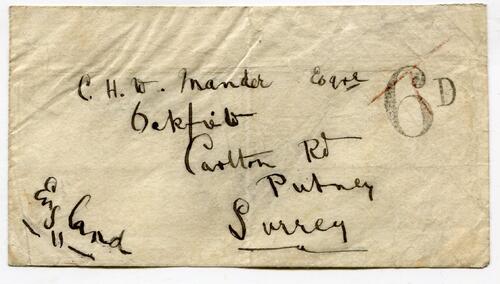 C. H. W. Mander Esqre
Oakfield
Carlton Rd
Putney
Surrey
England
6D